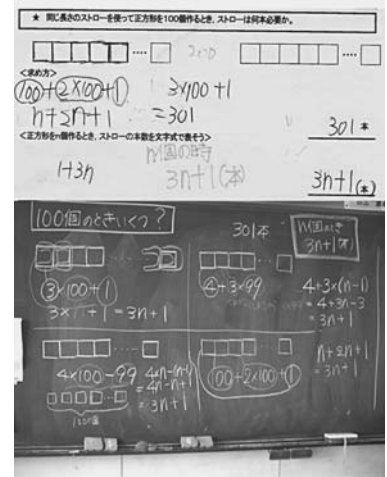 ★ 同じ長さのストローを使って正方形を100個作るとき、ストローは何本必要か。
<求め方>
100+2×100+1
3×100+1
n+2n+1
=301
301本
<正方形をn個作るとき、ストローの本数を文字式で表そう>
n個の時
1+3n
3n+1(本)
3n+1(本)
100個のときいくつ?
301本
n個のとき
3n+1(本)
3×100+1
3×n+1=3n+1
4+3×99
4+3×(n-1)
=4+3n-3
=3n+1
4×100-99
4×n-(n-1)
=4n-n+1
=3n+1
100個
100+2×100+1
n+2n+1
=3n+1